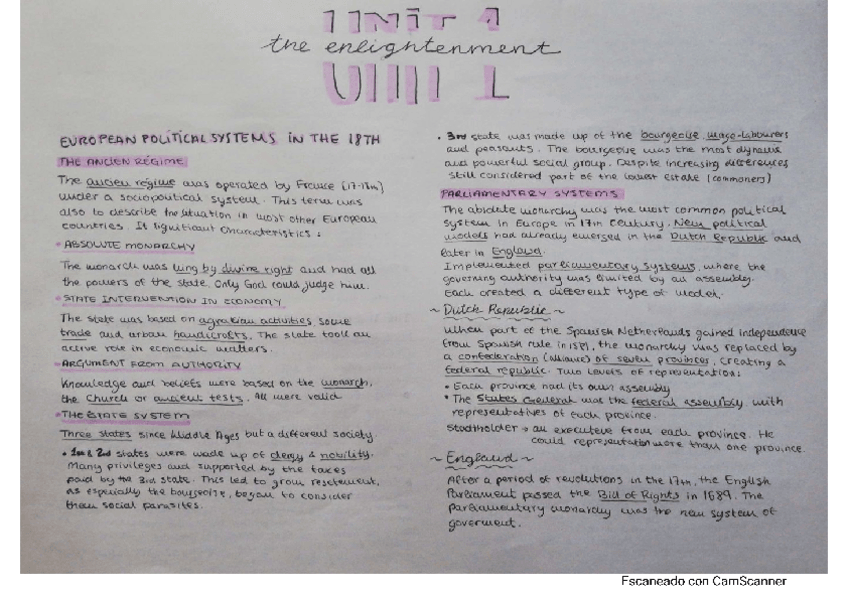 UNIT 1
the enlightenment
EUROPEAN POLITICAL SYSTEMS IN THE 18TH
THE ANCIEN RÉGIME
The ancien régime was operated by France (17-18th)
under a sociopolitical system. This term was
also to describe the situation in most other European
countries. It significant characteristics:
• ABSOLUTE MONARCHY
The monarch was king by divine right and had all
the powers of the state. Only God could judge him.
• STATE INTERVENTION IN ECONOMY
The state was based on agrarian activities, some
trade and urban handicrafts. The state took an
active role in economic matters.
• ARGUMENT FROM AUTHORITY
Knowledge and beliefs were based on the monarch,
the Church or ancient tests. All were valid
• THE STATE SYSTEM
Three states since Middle Ages but a different society.
• 1st & 2nd states were made up of clergy & nobility.
Many privileges and supported by the taxes
paid by the 3rd state. This led to grow resetement,
as especially the bourgeoise, began to consider
them social parasites.
• 3rd state was made up of the bourgeoise, wage-labourers
and peasants. The bourgeoise was the most dynamic
and powerful social group. Despite increasing differences
still considered part of the lowest estate (commoners)
PARLIAMENTARY SYSTEMS
The absolute monarchy was the most common political
system in Europe in 17th Century. New political
models had already emerged in the Dutch Republic and
later in England.
Implemented parliamentary systems, where the
governing authority was limited by an assembly.
Each created a different type of model.
~ Dutch Republic ~
When part of the Spanish Netherlands gained independence
from Spanish rule in 1581, the monarchy was replaced by
a confederation (alliance) of seven provinces, creating a
federal republic. Two levels of representation:
• Each province had its own assembly
• The States General was the federal assembly with
representatives of each province.
Stadtholder → an executive from each province. He
could representation more than one province.
~ England ~
After a period of revolutions in the 17th, the English
Parliament passed the Bill of Rights in 1689. The
parliamentary monarchy was the new system of
goverment.
Escaneado con CamScanner